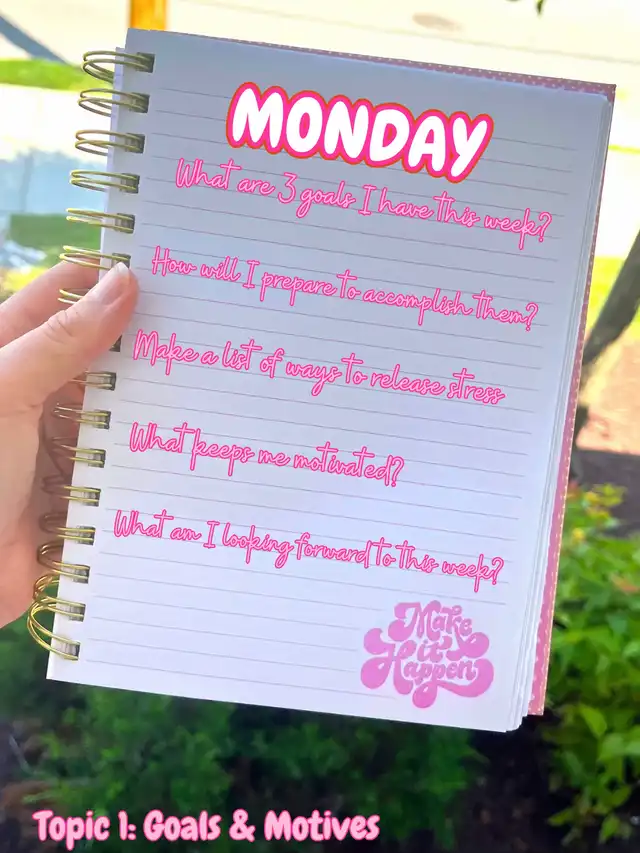 MONDAY
What are 3 goals I have this week?
How will I prepare to accomplish them?
Make a list of ways to release stress
What keeps me motivated?
What am I looking forward to this week?
Make
it
Happen
Topic 1: Goals & Motives